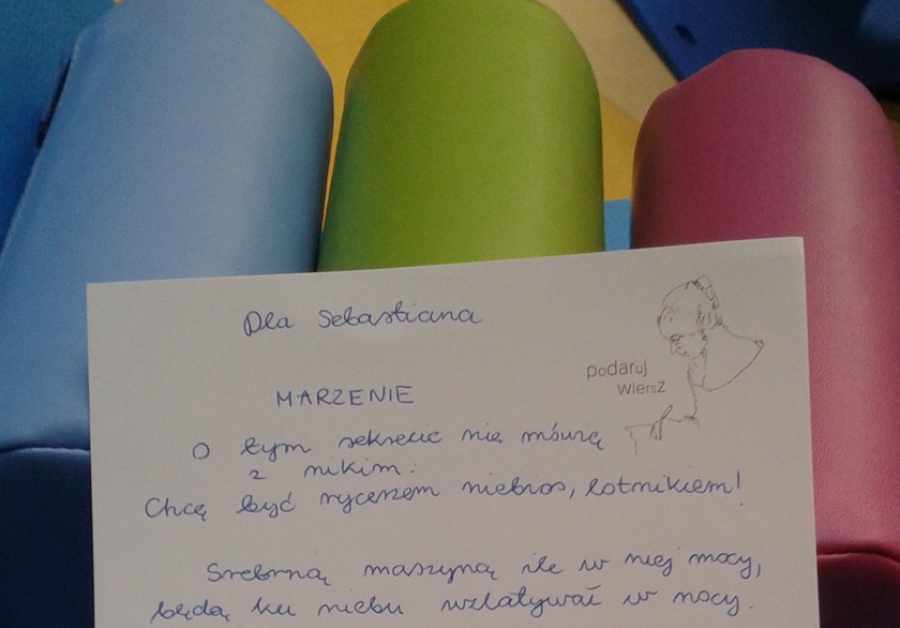 Dla Sebastiana
podaruj
wiersz
MARZENIE
O tym sekrecie nie mówię
z nikim:
Chcę być rycerzem niebios, lotnikiem!
Srebrną maszyną ile w niej mocy,
będę ku niebu wzlatywać w nocy.